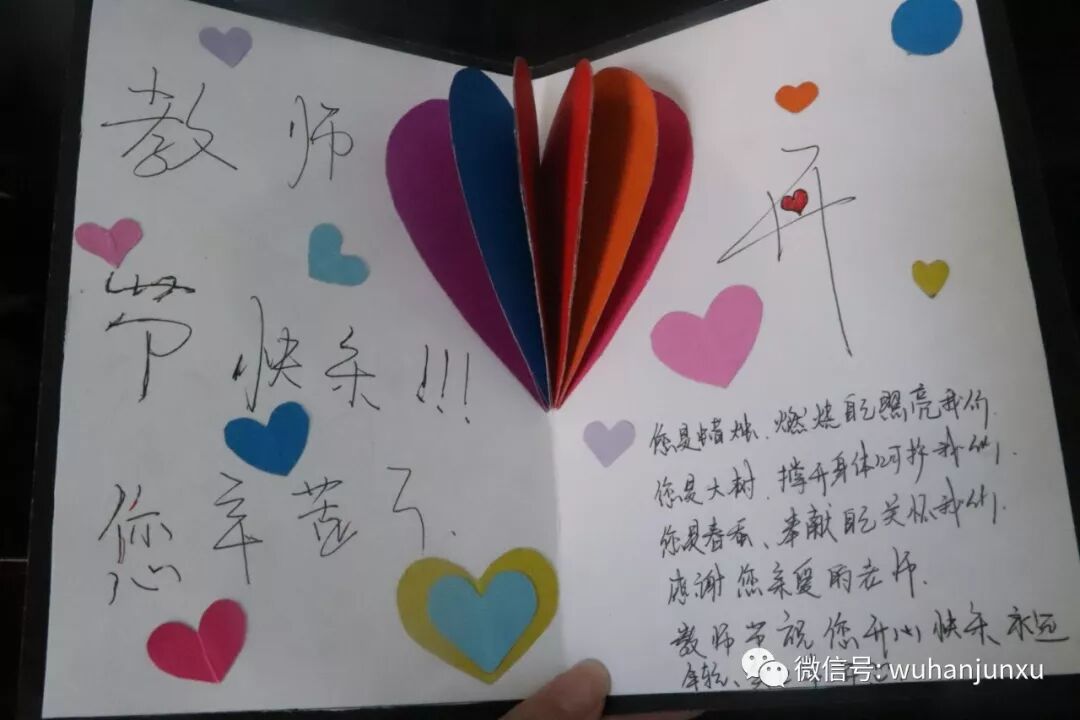 教师
节快乐!!!
您辛苦了.
开
您是蜡烛、燃烧自己照亮我们.
您是大树、撑开身体呵护我们.
您是春蚕、奉献自己关怀我们.
感谢您亲爱的老师.
教师节祝您开心快乐永远
年轻、
微信号: wuhanjunxu